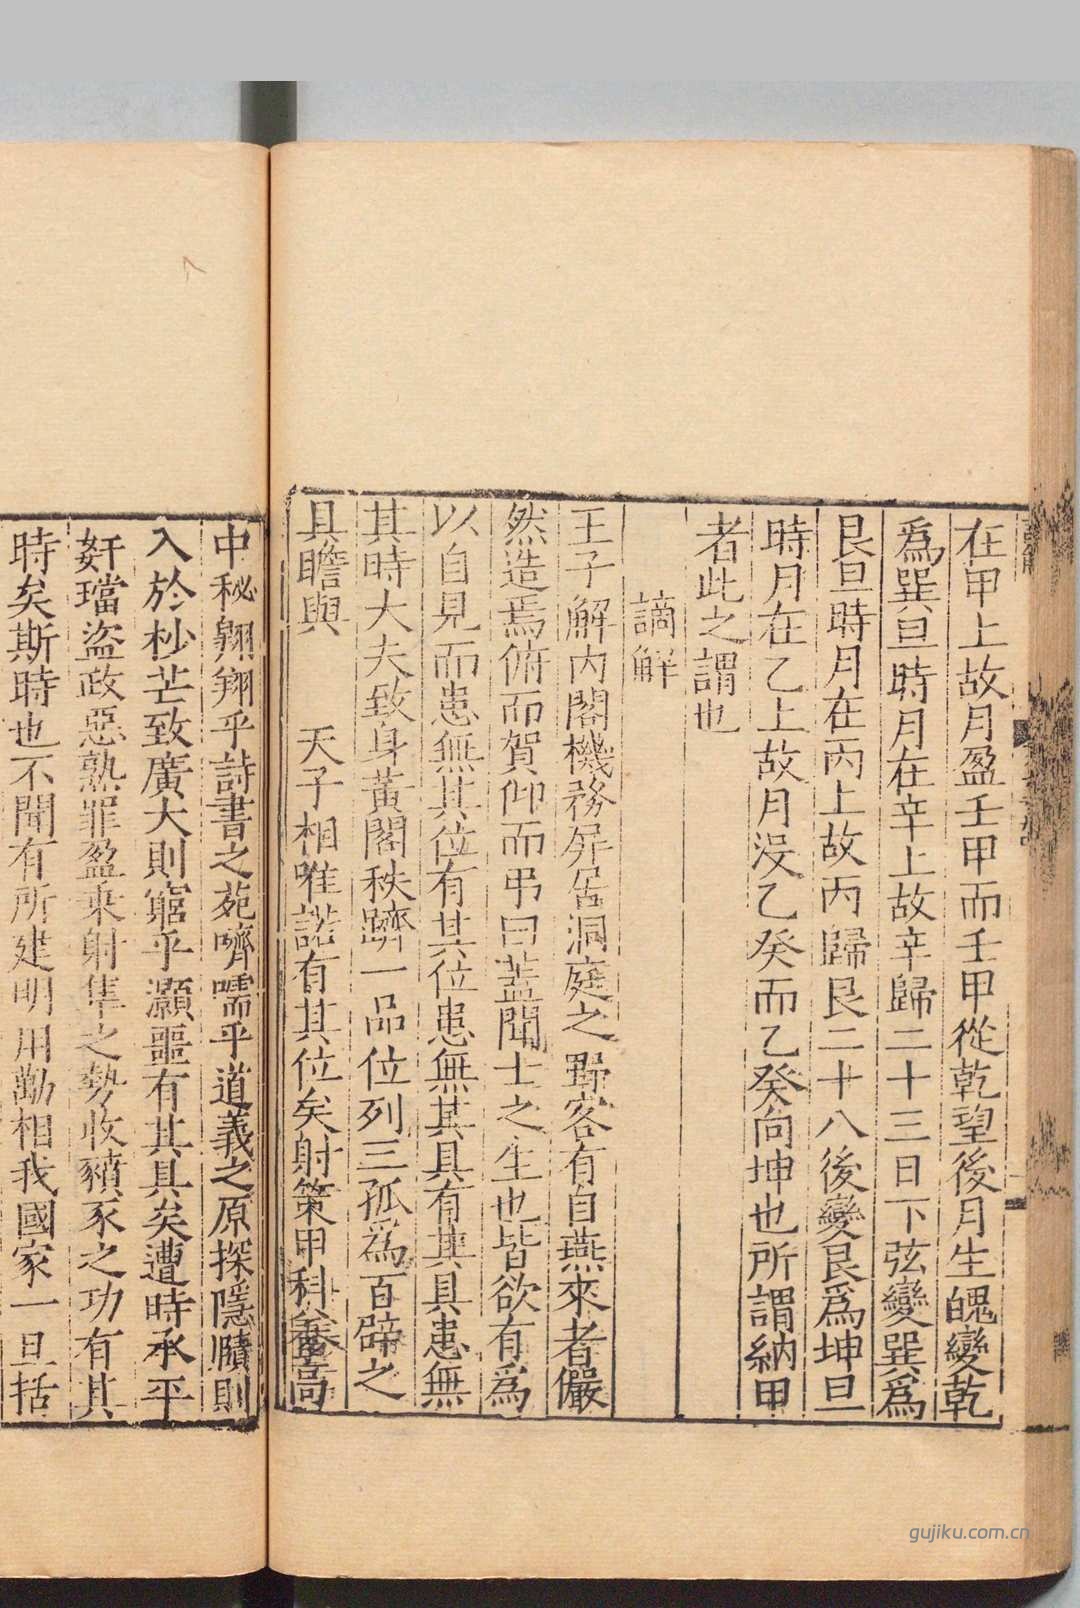 在甲上故月盈壬甲而壬甲從乾望後月生魄變乾
爲巽旦時月在辛上故辛歸二十三日下弦變巽爲
艮旦時月在丙上故丙歸艮二十八後變艮爲坤旦
時月在乙上故月沒乙癸而乙癸向坤也所謂納甲
者此之謂也
謫解
王子解內閣機務屏居洞庭之野客有自燕來者儼
然造焉俯而賀仰而弔曰蓋聞士之生也皆欲有爲
以自見而患無其位有其位患無其具有其具患無
其時大夫致身黃閣秩躋一品位列三孤爲百辟之
具瞻與 天子相唯諾有其位矣射策甲科養高
中秘翱翔乎詩書之苑嚌嚅乎道義之原探隱賾則
入於杪芒致廣大則窮乎灝噩有其具矣遭時承平
奸璫盜政惡熟罪盈乘射隼之勢收豶豕之功有其
時矣斯時也不聞有所建明用勱相我國家一旦括
gujiku.com.cn